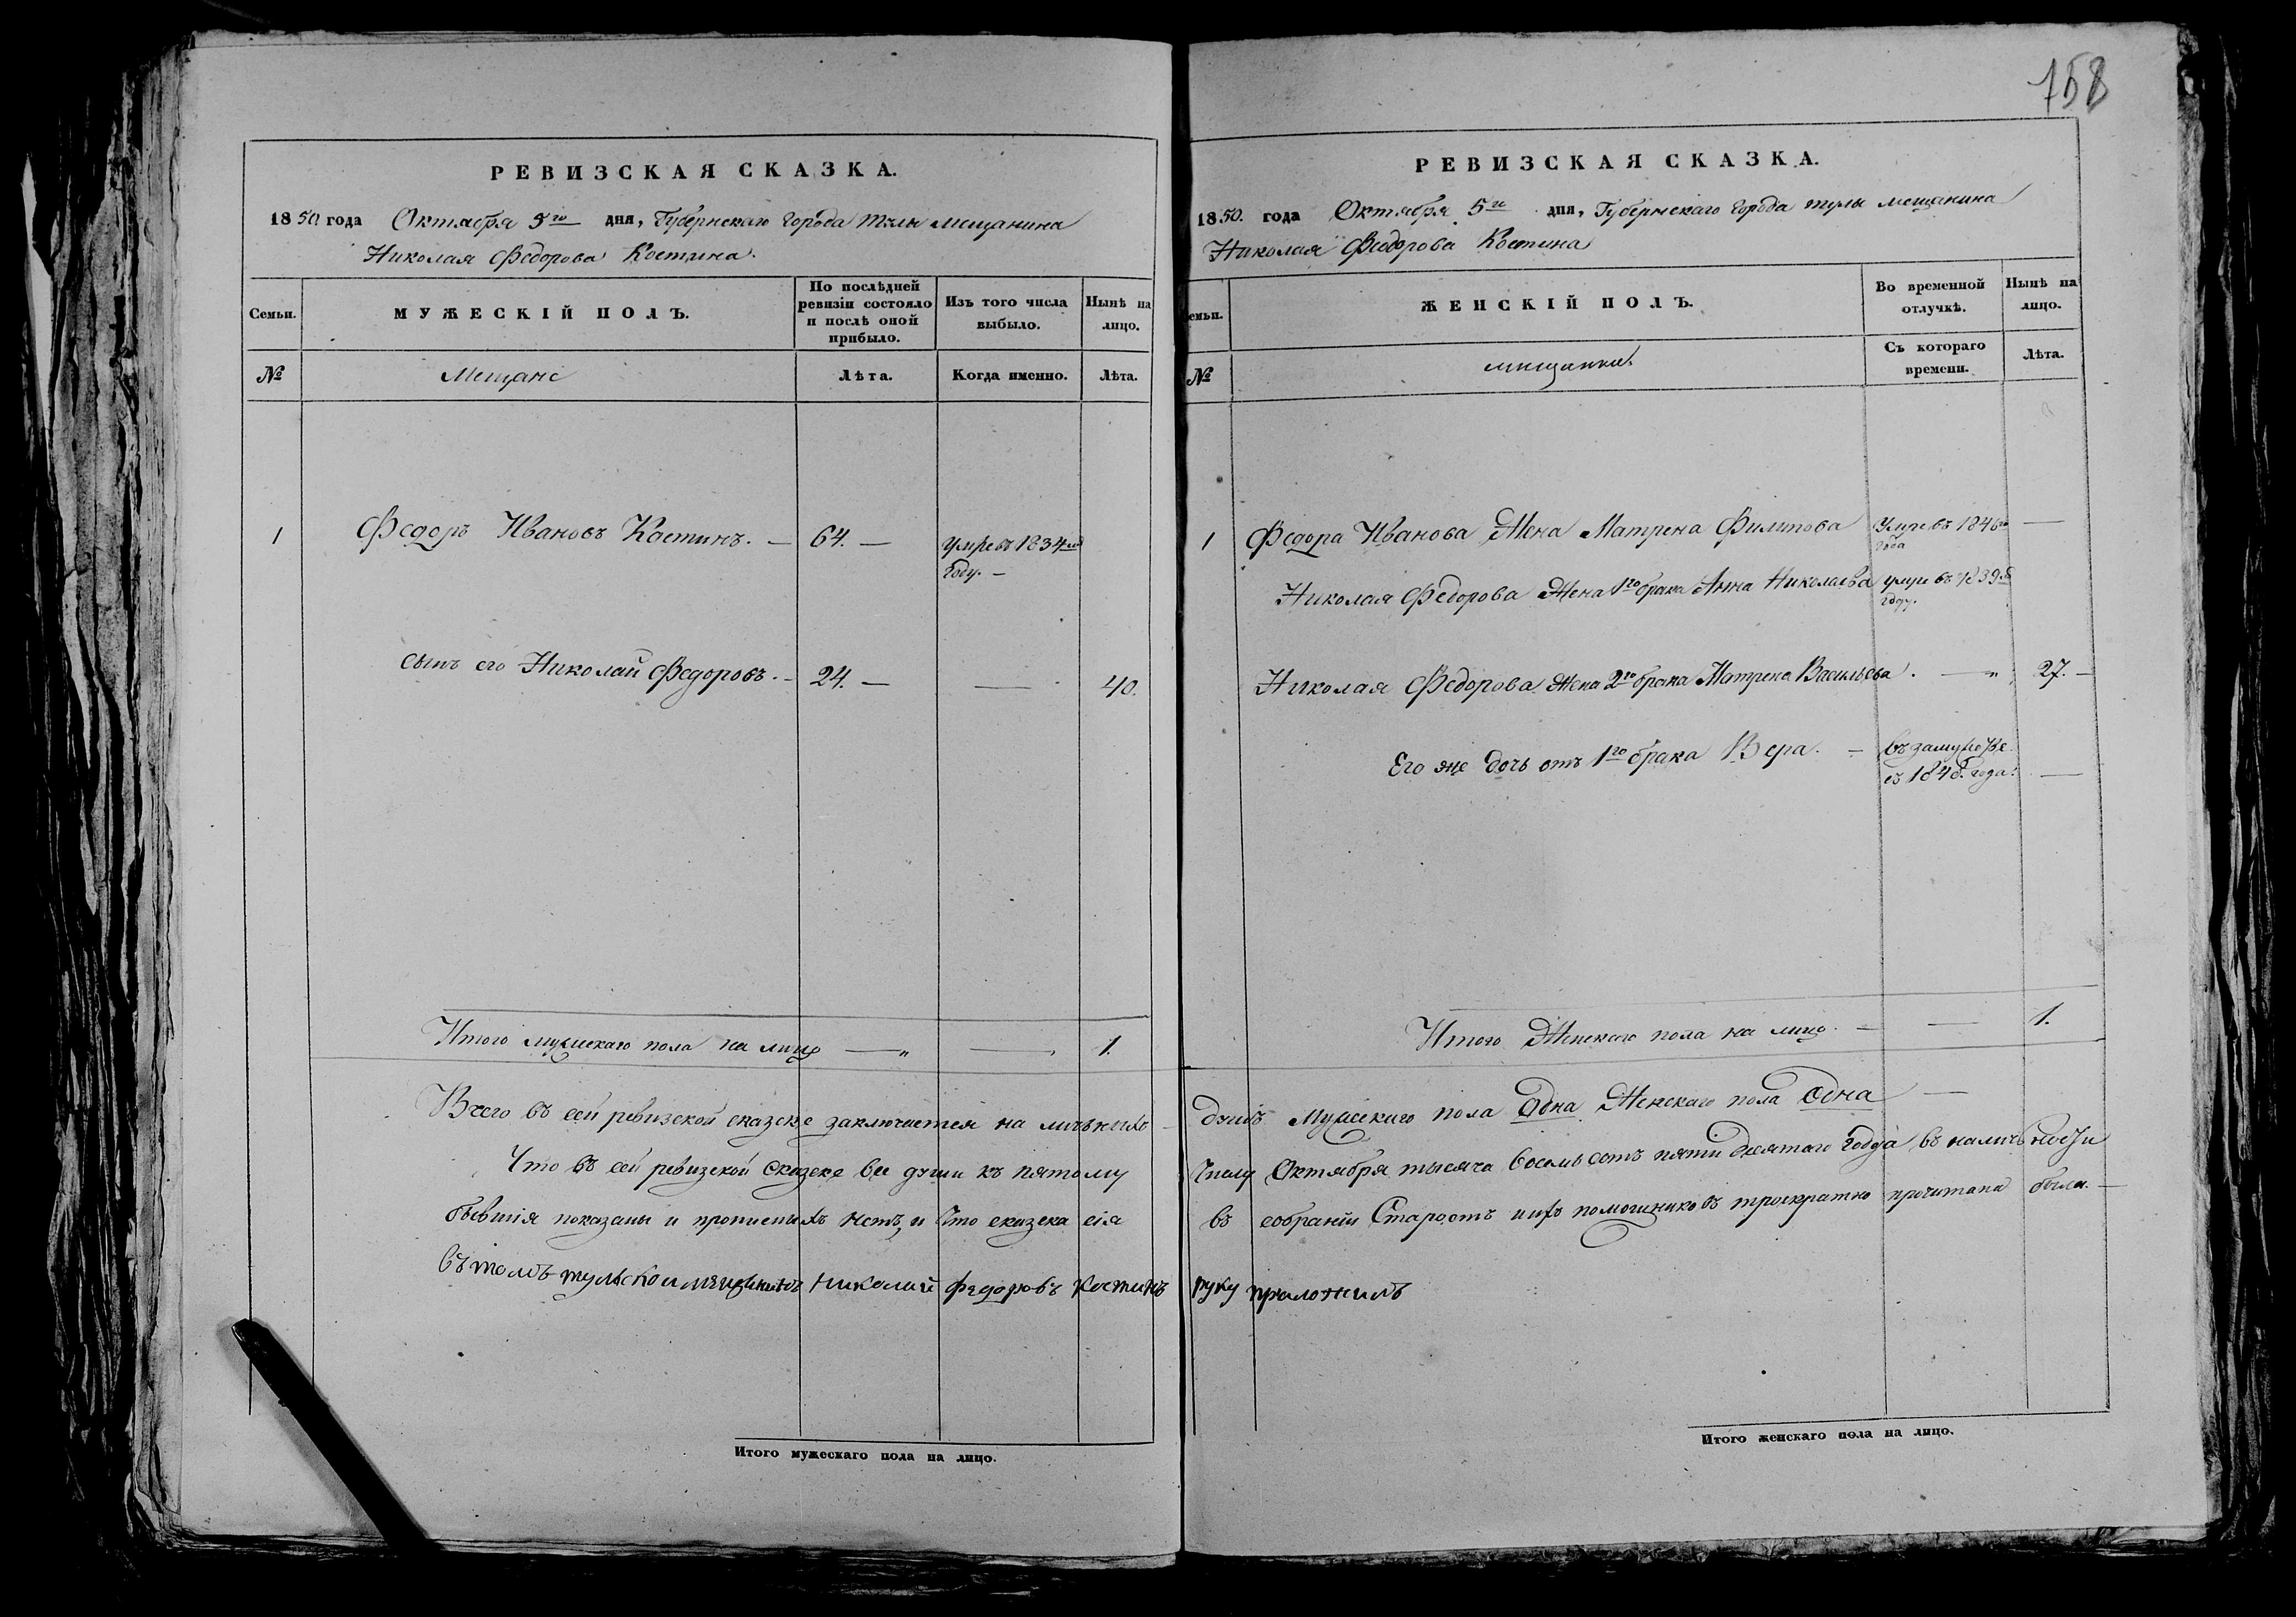 158
РЕВИЗСКАЯ СКАЗКА.
1850 года Октября 5го дня, Губернскаго города Тулы мещанина
Николая Федорова Костина.
Семьи.
МУЖЕСКІЙ ПОЛЪ.
По послѣдней ревизіи состояло и послѣ оной прибыло.
Изъ того числа выбыло.
Нынѣ на лицо.
№
Мещане
Лѣта.
Когда именно.
Лѣта.
1 Федоръ Ивановъ Костинъ. — 64. — умре въ 1834м
году. —
сынъ его Николай Федоровъ. - 24. — — 40.
Итого мужескаго пола на лицо — — 1.
РЕВИЗСКАЯ СКАЗКА.
1850. года Октября 5го дня, Губернскаго города тулы мещанина
Николая Федорова Костина
емьи.
ЖЕНСКІЙ ПОЛЪ.
Во временной отлучкѣ.
Нынѣ на лицо.
№
мещанки.
Съ котораго времени.
Лѣта.
1 Федора Иванова Жена Матрена Филипова умре въ 1846го —
года
Николая Федорова Жена 1го брака Анна Николаева умре въ 1839м
году.
Николая Федорова Жена 2го брака Матрена Васильева. — 27. —
Его же дочь отъ 1го брака Вера. — въ замужеве
съ 1848. года. —
Итого Женскаго пола на лицо. — — 1.
Всего въ сей ревизской сказке заключается на личьныхъ душъ Мужескаго пола Одна Женскаго пола Одна —
Что въ сей ревизской сказке все души къ пятому числу Октября тысяча восемь сотъ пяти десятаго года въ наличьности
бывшія показаны и прописныхъ нетъ, и что сказска сія въ собраніи Старостъ ихъ помощниковъ троекратно прочитана была. —
Въ томъ тульскои мещининъ николай федоровъ костинъ руку приложилъ
Итого мужескаго пола на лицо.
Итого женскаго пола на лицо.